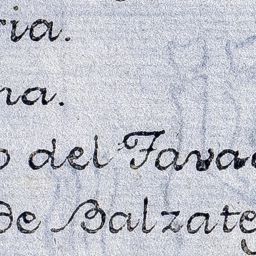 ria.
na.
o del Favac
De Balzateg